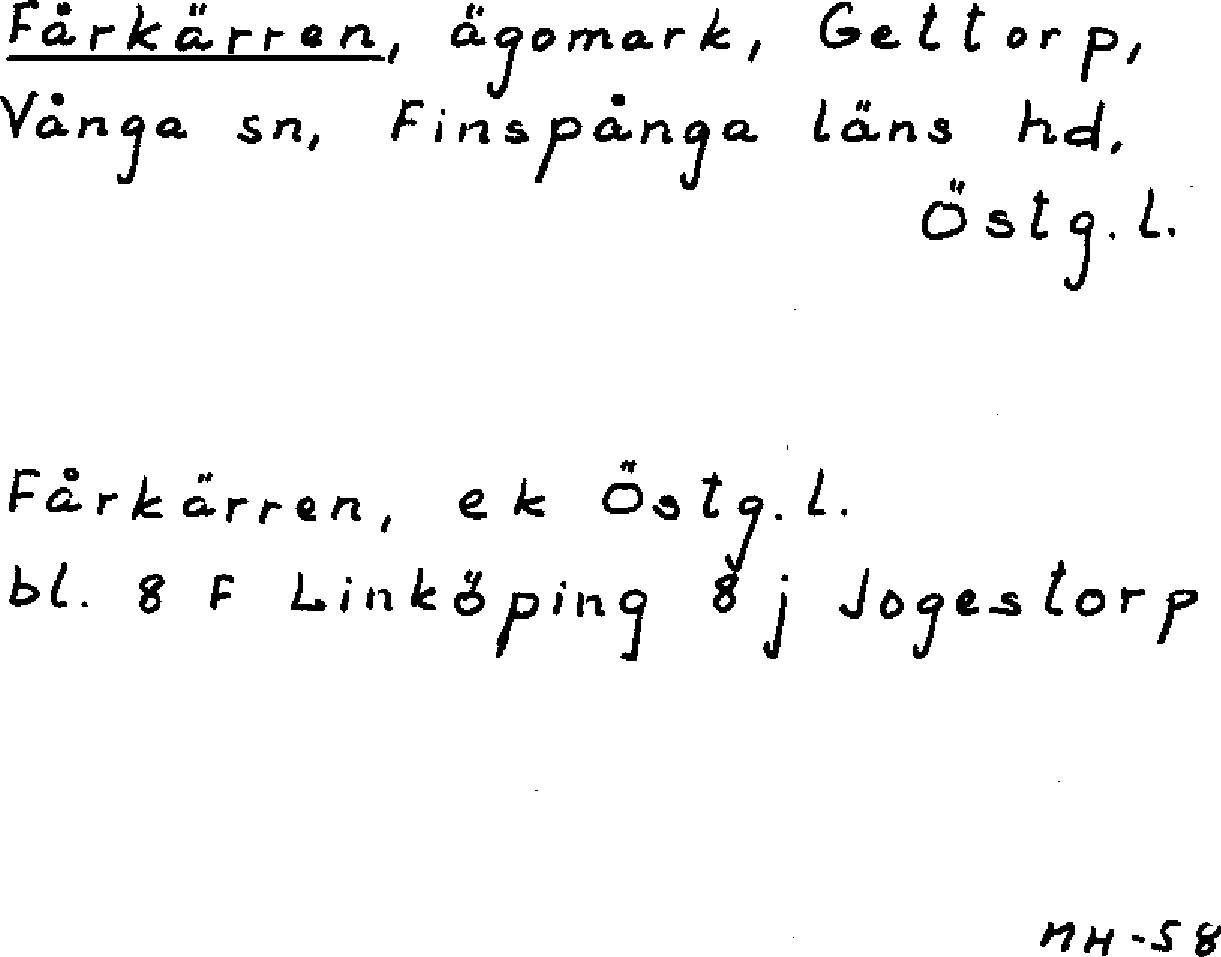 Fårkärren, ägomark, Gettorp,
Vånga sn, Finspånga läns hd,
Östg.l.
Fårkärren, ek Östg.l.
bl. 8 F Linköping 8 j Jogestorp
MH-58